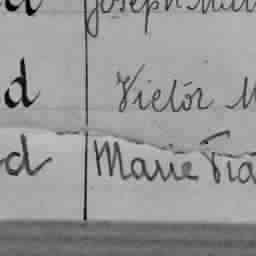 d Joseph
d Victor M
d Marie